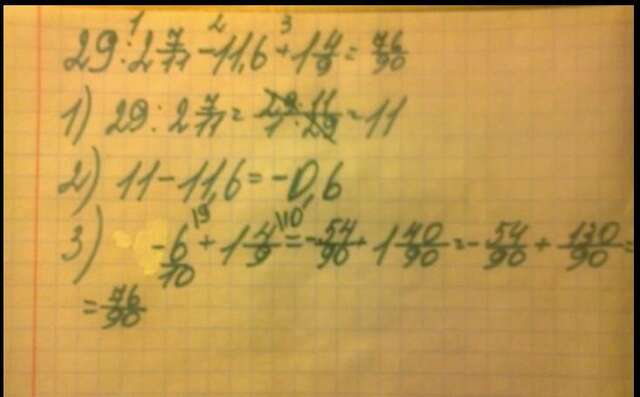 1 2 3
29 : 2 7/11 - 11,6 + 1 4/9 = 76/90
1) 29 : 2 7/11 = 29·11/1·29 = 11
2) 11 - 11,6 = -0,6
3) -6/10 + 1 4/9 = -54/90 + 1 40/90 = -54/90 + 130/90 =
= 76/90